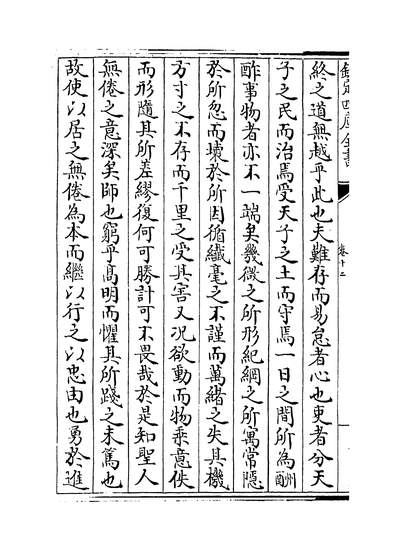 欽定四庫全書
卷十二
終之道無越乎此也夫難存而易怠者心也吏者分天
子之民而治焉受天子之土而守焉一日之間所為酬
酢事物者亦不一端矣幾微之所形紀綱之所寓常隱
於所忽而壞於所因循纖毫之不謹而萬緒之失其機
方寸之不存而千里之受其害又况欲動而物乘意佚
而形隨其所差繆復何可勝計可不畏哉於是知聖人
無倦之意深矣師也窮乎髙明而懼其所踐之未篤也
故使以居之無倦為本而繼以行之以忠由也勇於進